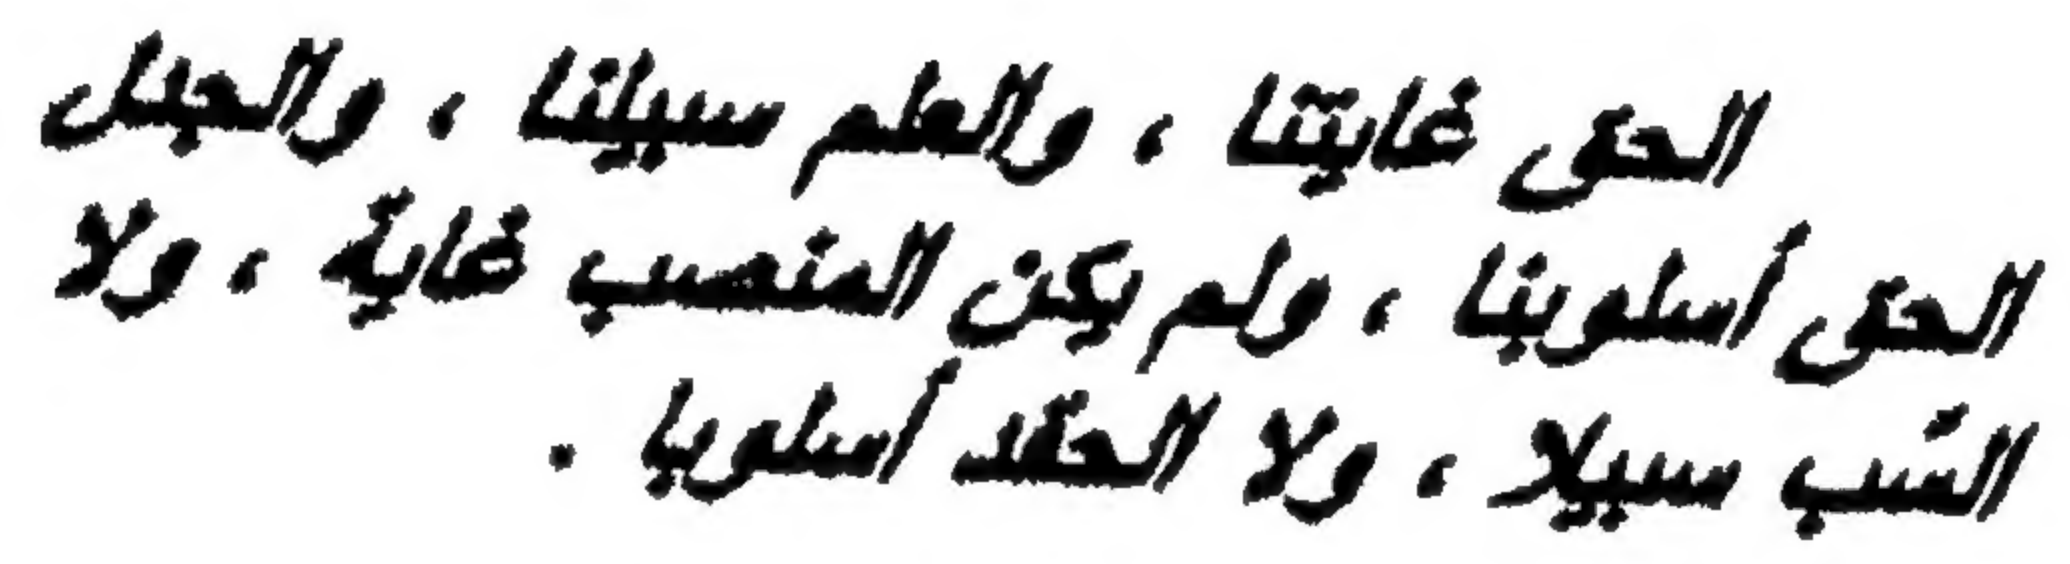 الحق غايتنا ، والعلم سبيلنا ، والجدل
الحق أسلوبنا ، ولم يكن المنصب غاية ، ولا
السّب سبيلا ، ولا الحقد أسلوبا .